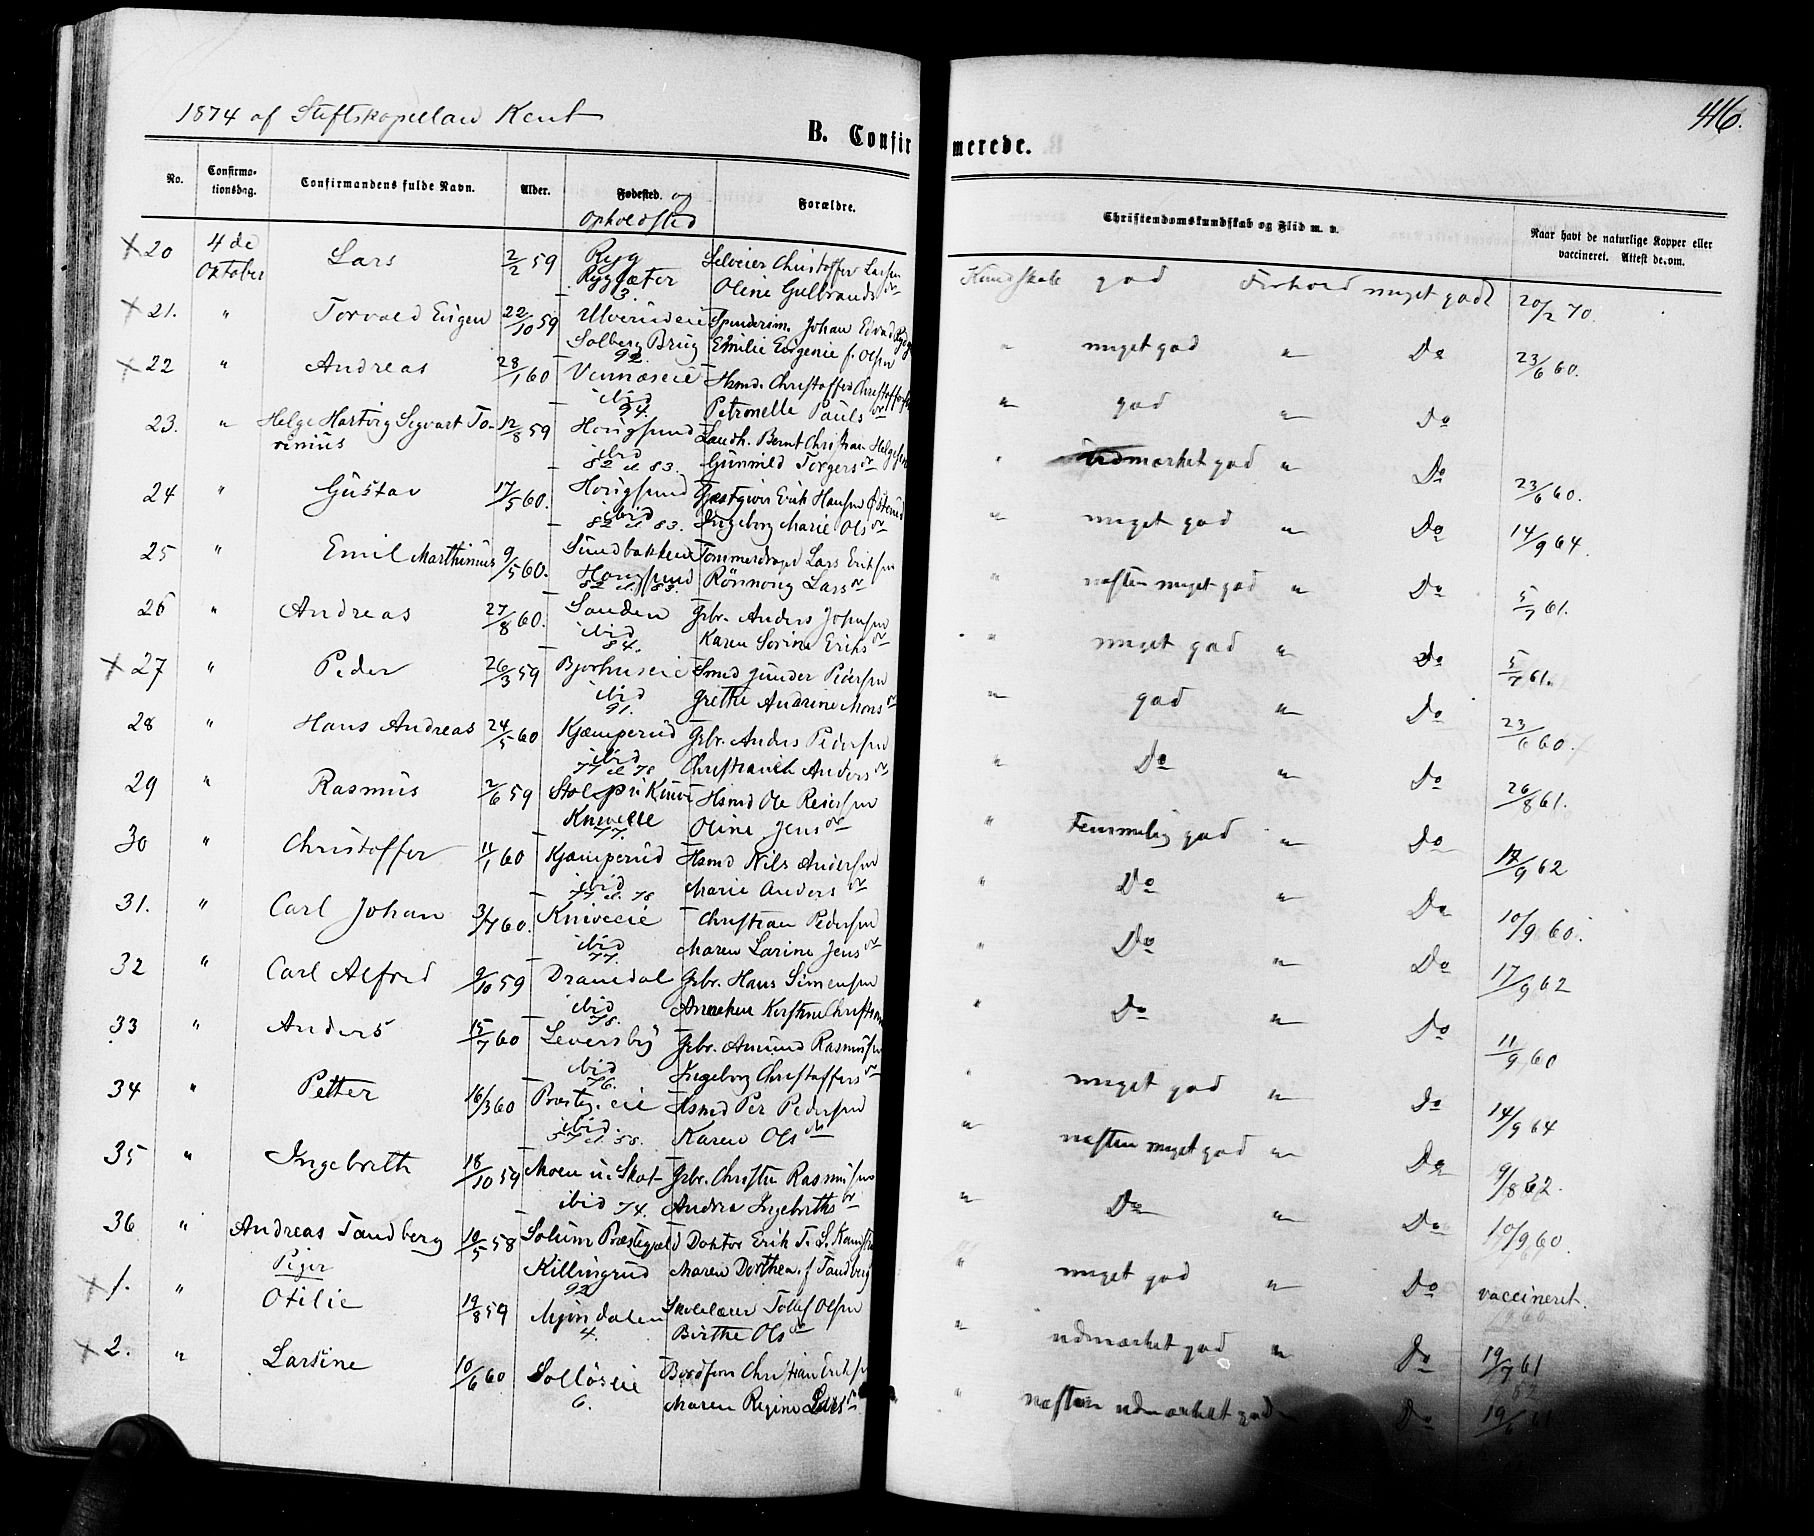 1874 af Stiftskapellan Kent
416.
B. Confirmerede.
No.
Confirmationsdag.
Confirmandens fulde Navn.
Alder.
Fødested. og
Opholdsted
Forældre.
Christendomskundskab og Flid m. v.
Naar havt de naturlige Kopper eller vaccineret. Attest derom.
20 4de Oktober Lars 2/2 59 Ryg Selveier Christoffer Larsen Kundskab god Forhold meget godt 20/2 70.
Rygsæter 3. Oline Gulbrandsdr
21. " Torvald Eugen 22/10 59 Ulverudeie Johan " meget god " Do 23/6 60.
Solberg Brug 92. Emilie Eugenie f. Olsen
22 " Andreas 28/1 60 Hsmd. Christoffer Christoffersen " god " Do
ibid 94. Petronelle Paulsdr
23. " Helge Hartvig Segvart To- 12/8 59 Hougsund Landh. Bernt Christian Helgesen " udmærket god " Do 23/6 60.
rinius ibid 82 el. 83. Gunnild Torgersdr
24 " Gustav 17/5 60. Hougsund Gjæstgiver Erik Hansen " meget god " Do 14/9 64.
ibid 82 el. 83. Ingeborg Marie Olsdr
25 " Emil Marthinius 9/5 60. Sundbakken Tømmerdrager Lars Eriksen " næsten meget god " Do 5/7 61.
Hougsund 82 el. 83. Rønnoug Larsdr
26 " Andreas 27/8 60. Sanden Gbr. Anders Johnsen " meget god " Do 5/7 61.
ibid 84. Karen Sorine Eriksdr
27 " Peder 26/3 59 Bjorhuseie Smed Gunder Pedersen " god " Do 23/6 60.
ibid 91. Grethe Andrine Monsdr
28 " Hans Andreas 24/5 60 Kjæmperud Gbr. Anders Pedersen " Do " Do 26/8 61.
ibid 77 el. 78 Andersdr
29 " Rasmus 2/6 59 Hsmd Ole Reiersen " Temmelig god " Do 17/9 62
Knivelle 77. Oline Jensdr
30 " Christoffer 11/1 60 Kjæmperud Hsmd Nils Andersen " Do " Do 10/9 60.
ibid 77 el. 78 Marie Andersdr
31. " Carl Johan 3/7 60. Kniveeie Christian Pedersen " Do " Do 17/9 62
ibid 77. Maren Larine Jensdr
32 " Carl Alfred 9/10 59 Dramdal Gbr. Hans Simensen " Do " Do 11/9 60
ibid 78. Anneken Kirstine
33 " Anders 15/7 60 Leversby Gbr. Amund Rasmusen " meget god " Do 14/9 64
ibid 76. Ingeborg Christoffersdr
34 " Petter 16/3 60 Præsteg. eie Hsmd Per Pedersen " næsten meget god " Do 9/8 62.
ibid. 57 el. 58. Karen Olsdr
35 " Ingebreth 18/10 59 Moen u. Skot- Gbr. Christen Rasmusen " Do " Do 10/9 60.
ibid 74. Andrea Ingebrethsdr
36 " Andreas Tandberg 10/5 58 Solum Præstegjæld Doktor Erik T. S. " meget god " Do vaccineret.
Killingrud 92 Maren Dorthea f Tandberg
Piger
1. " Otilie 19/8 59 Mjøndalen 4. Skolelærer Tollef Olsen " udmærket god " Do 19/7 61
Birthe Olsdr
2. " Larsine 10/6 60 Solløseie 6. Christian Eriksen " næsten udmærket god " Do 19/6 61
Maren Regine Larsdr